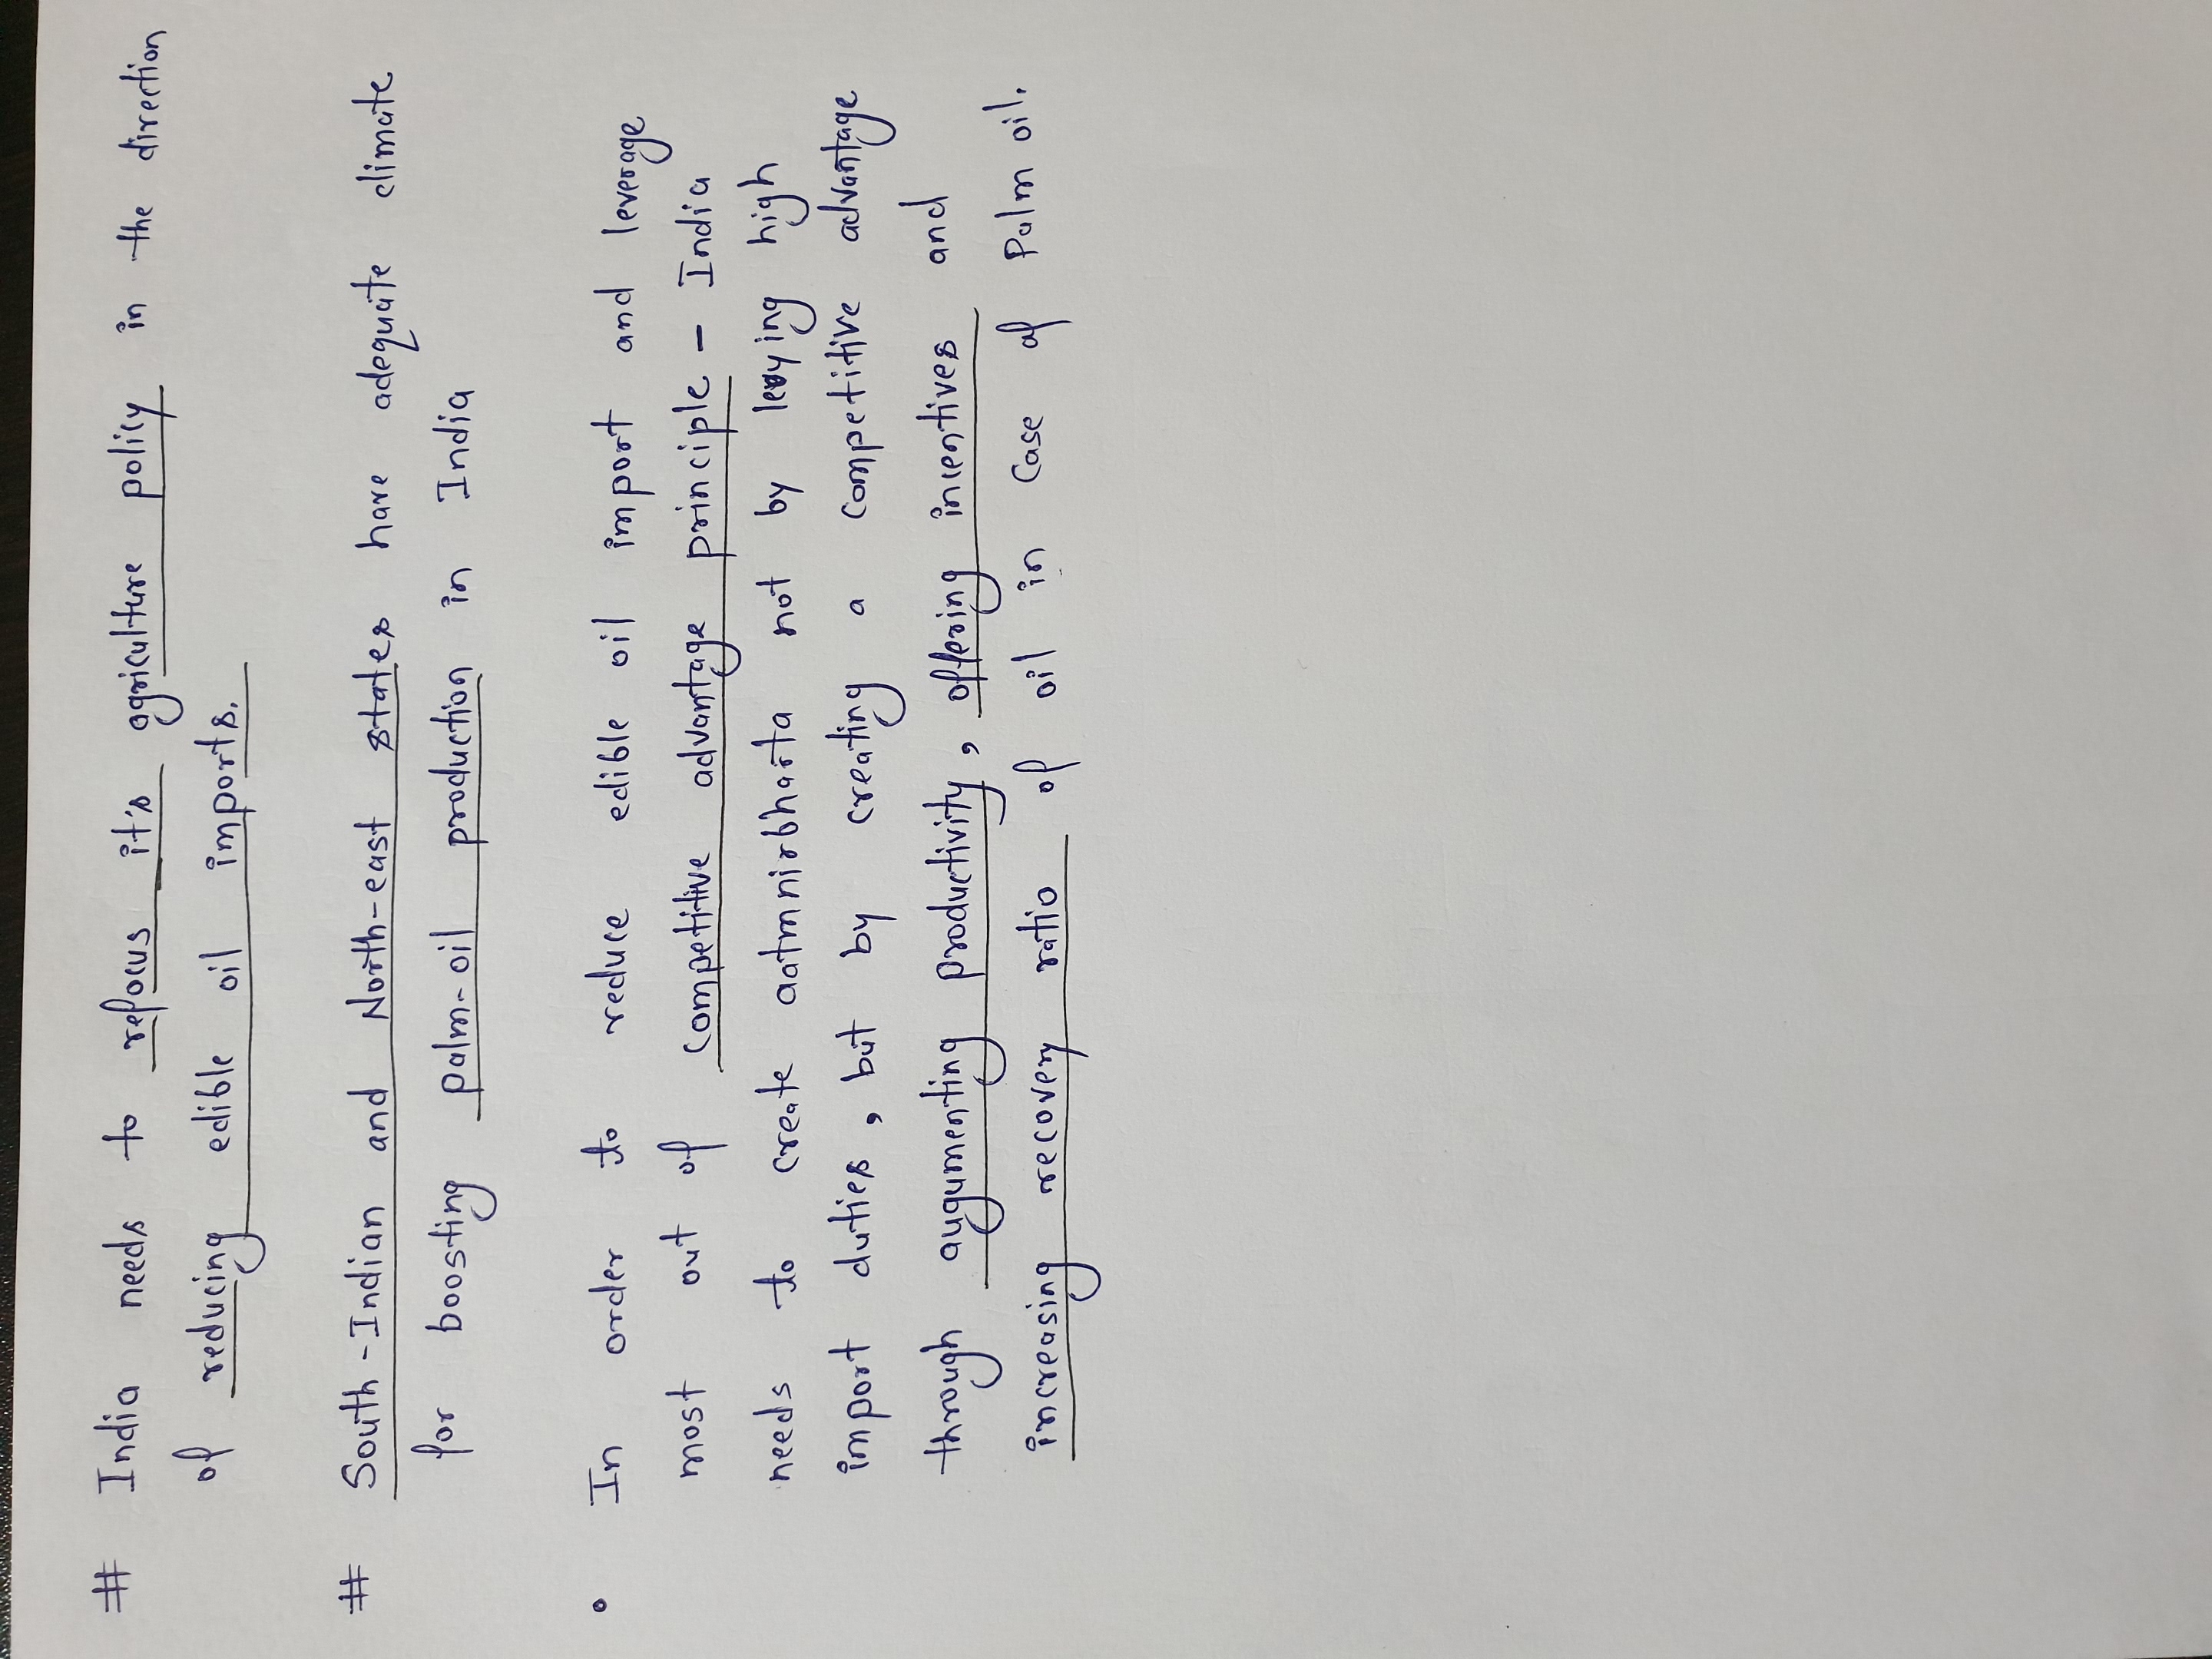 # India needs to refocus it's agriculture policy in the direction
of reducing edible oil imports.
# South-Indian and North-east states have adequate climate
for boosting palm-oil production in India
• In order to reduce edible oil import and leverage
most out of competitive advantage principle - India
needs to create aatmnirbharta not by levying high
import duties, but by creating a competitive advantage
through augumenting productivity, offering incentives and
increasing recovery ratio of oil in case of Palm oil.